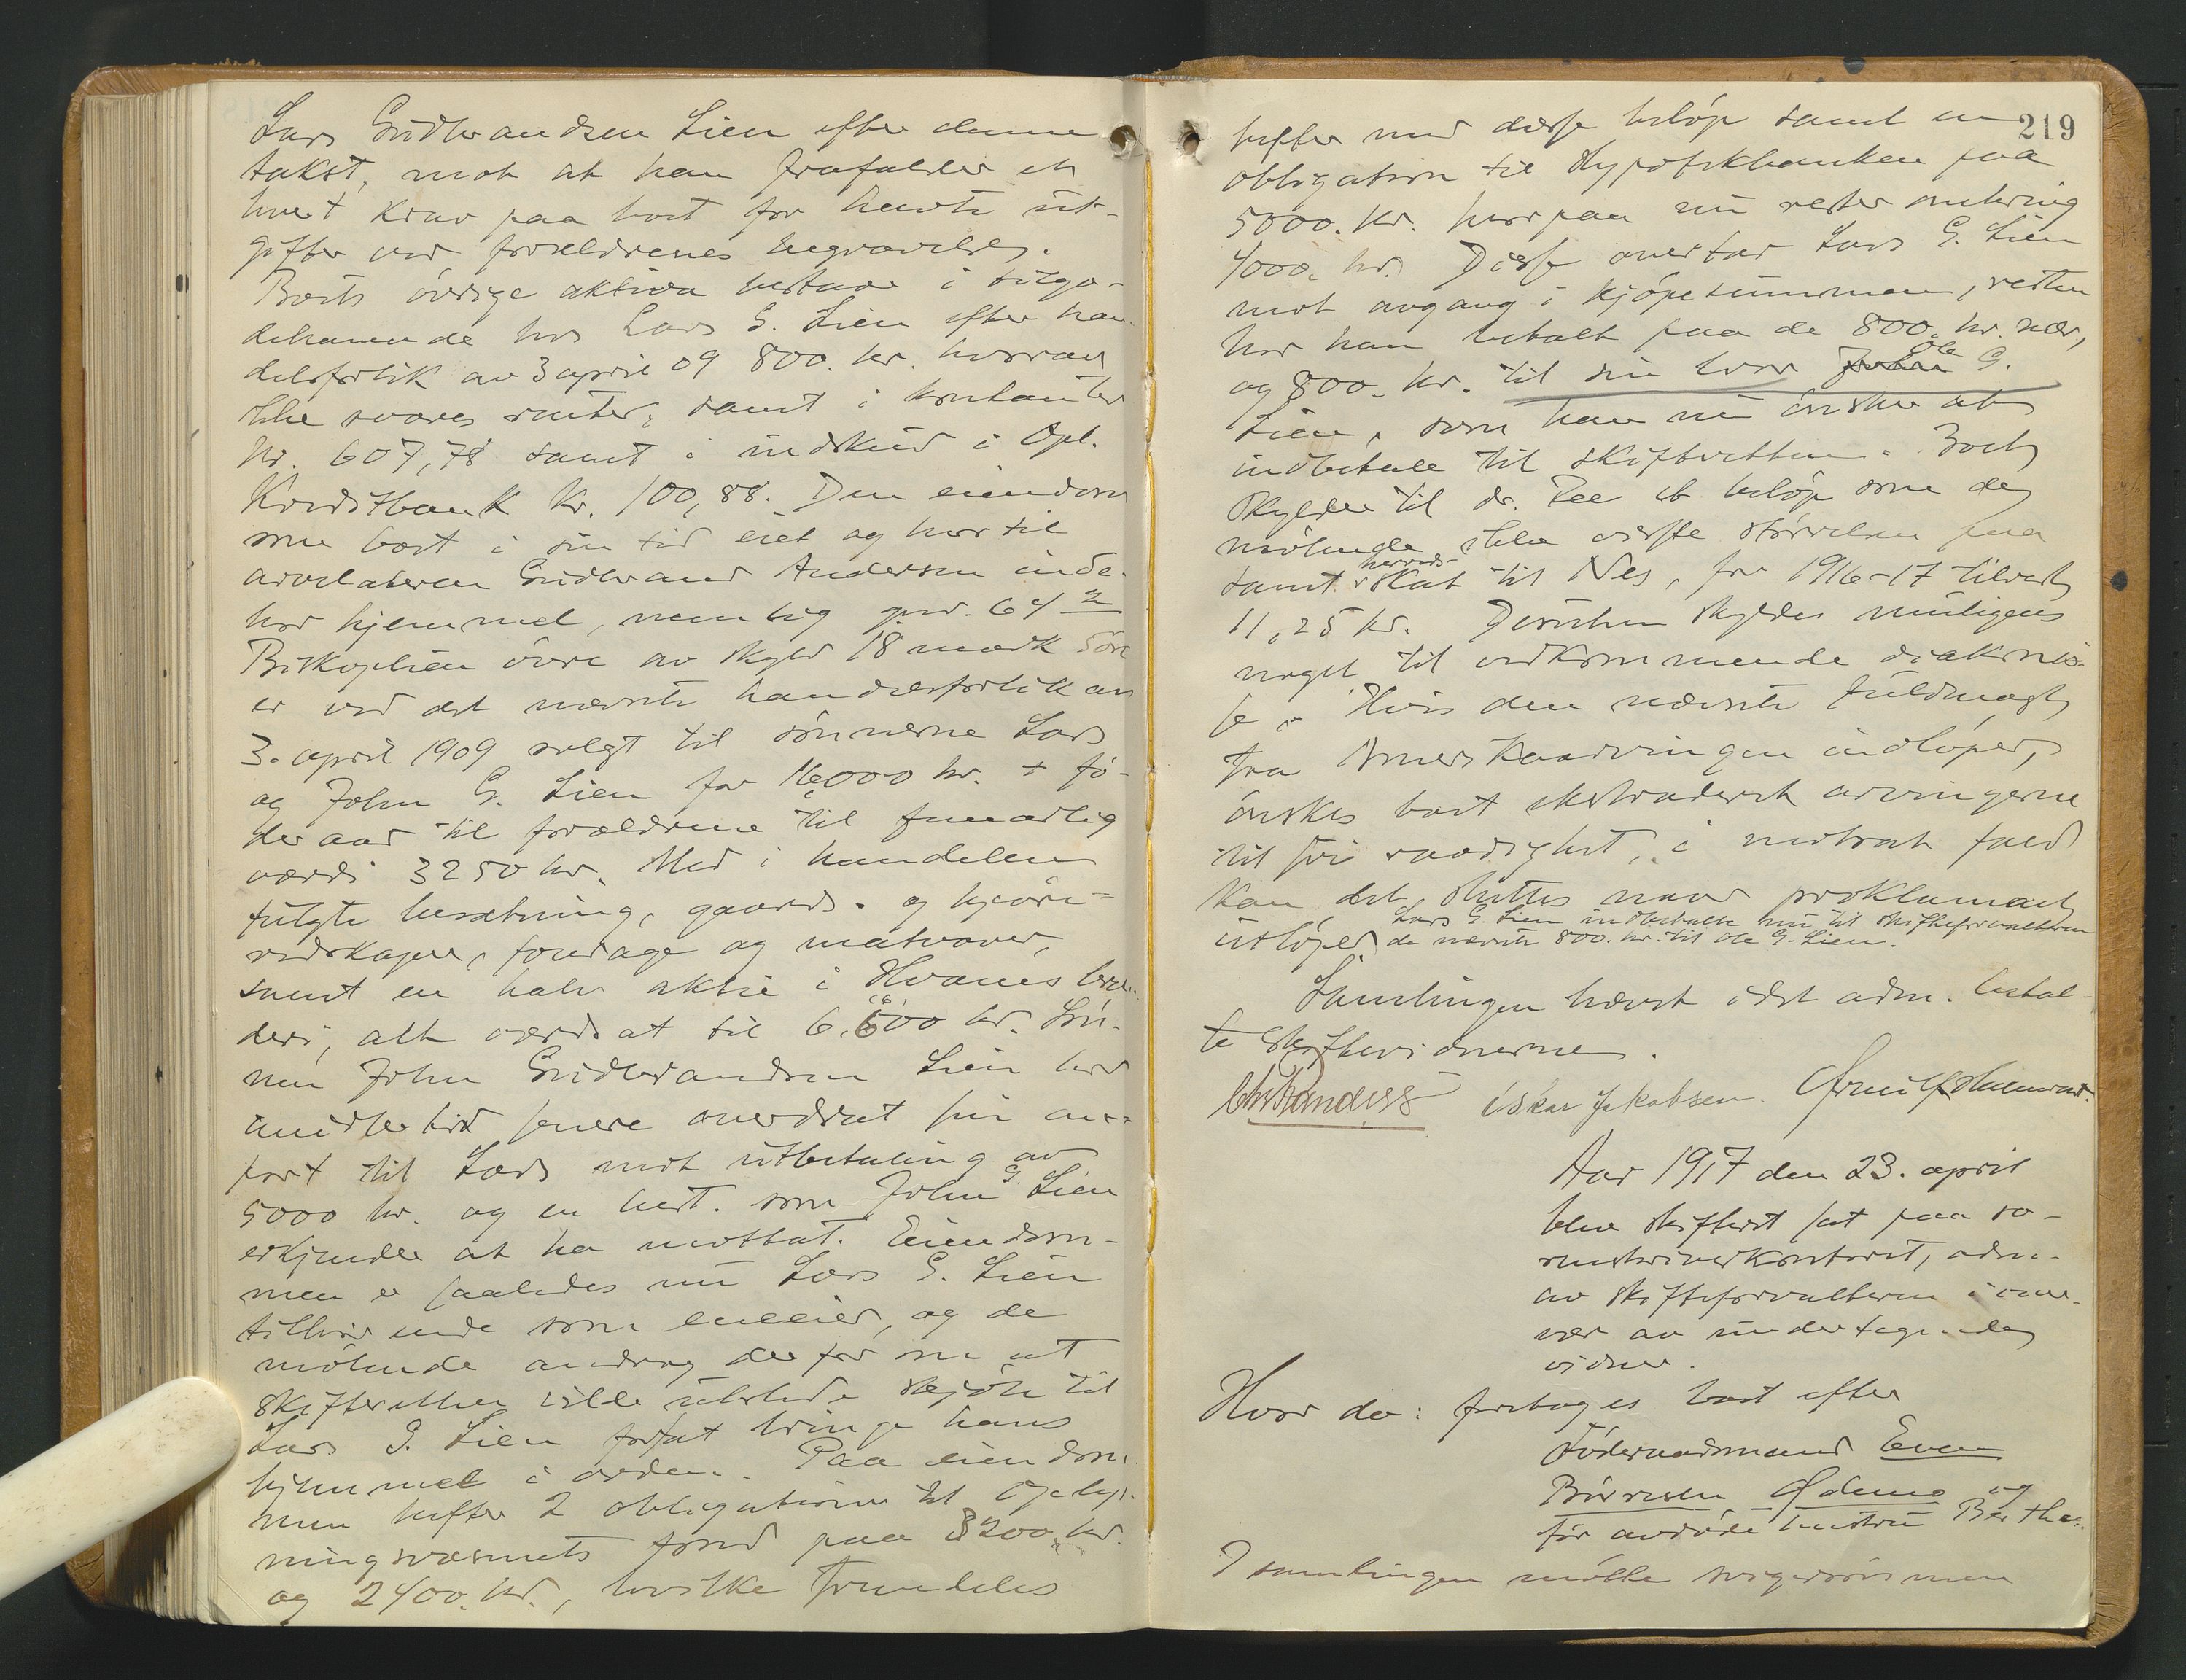 Lars Gudbrandsen Lien efter denne
takst, mot at han frafalder et
hvert krav paa bort for havte ut-
gifter ved forældrenes begravelse.
Boets øvrige aktiva bestaar i tilgo-
dehavende hos Lars G. Lien efter han-
delsforlik av 3 april 09 800. kr. hvorav
ikke svares renter, samt i kontanter
kr. 607,78 samt i indskud i Opl.
Kreditbank kr. 100,88. Den eiendom
som boet i sin tid eiet og hvortil
arvelateren Gudbrand Andersen inde-
har hjemmel, nemlig gnr. 64 2
Biskoplien øvre av skyld 18 mark øre
er ved det nævnte handelsforlik av
3. april 1909 solgt til sønnerne Lars
og John G. Lien for 16,000 kr. + fø-
deraad til forældrene til femaarlig
værdi 3250 kr. Med i handelen
fulgte besætning, gaards- og kjøre-
redskaper, fourage og matvarer,
samt en halv aktie i Hvams bræn-
deri, alt værdsat til 6.600 kr. Søn-
nen John Gudbrandsen Lien har
imidlertid senere overdrat sin an-
part til Lars mot utbetaling av
5000 kr. og en hest. som John G. Lien
erkjender at ha mottat. Eiendom-
men er saaledes nu Lars G. Lien
tilhørende som eneeier, og de
møtende androg derfor om at
skifteretten ville utstede skjøte til
Lars G. Lien for at bringe hans
hjemmel i orden. Paa eiendom-
men hefter 2 obligationer til Oplys-
ningsvæsnets fond paa 3200. kr.
og 2400. kr., hvilke fremdeles
219
hefter med disse beløp samt en
obligation til Hypotekbanken paa
5000. kr. hvorpaa nu rester omkring
4000. kr. Disse overtar Lars G. Lien
mot avgang i kjøpesummen, resten
har han betalt paa de 800. kr. nær,
og 800. kr. til sin bror John Ole G.
Lien, som han nu ønsker at
indbetale til skifteretten. Boet
skylder til dr. Lee et beløp som de
møtende ikke visste størrelsen paa
samt herreds- skat til Nes, for 1916-17 tilvest
11,25 kr. Desuten skyldes muligens
noget til vedkommende diakonis-
se. Hvis den nævnte fuldmagt
fra Amerikaarvingen indløper,
ønskes boet ekstraderet arvingerne
til fri raadighet, i motsat fald
kan det sluttes naar proklamaet
utløper. Lars G. Lien indbetalte nu til skifteforvalteren
de nævnte 800. kr. til Ole G. Lien.
Samlingen hævet idet adm. betal-
te skiftevidnerne.
Chr Randers Oskar Jakobsen.
Aar 1917 den 23. april
blev skifteret sat paa so-
renskriverkontoret, adm.
av skifteforvalteren i over-
vær av undertegnede
vidner.
Hvor da: foretoges boet efter
føderaadsmand Even
Børresen Ødemo og
før avdøde hustru Berthe.
I samlingen møtte svigersønnen